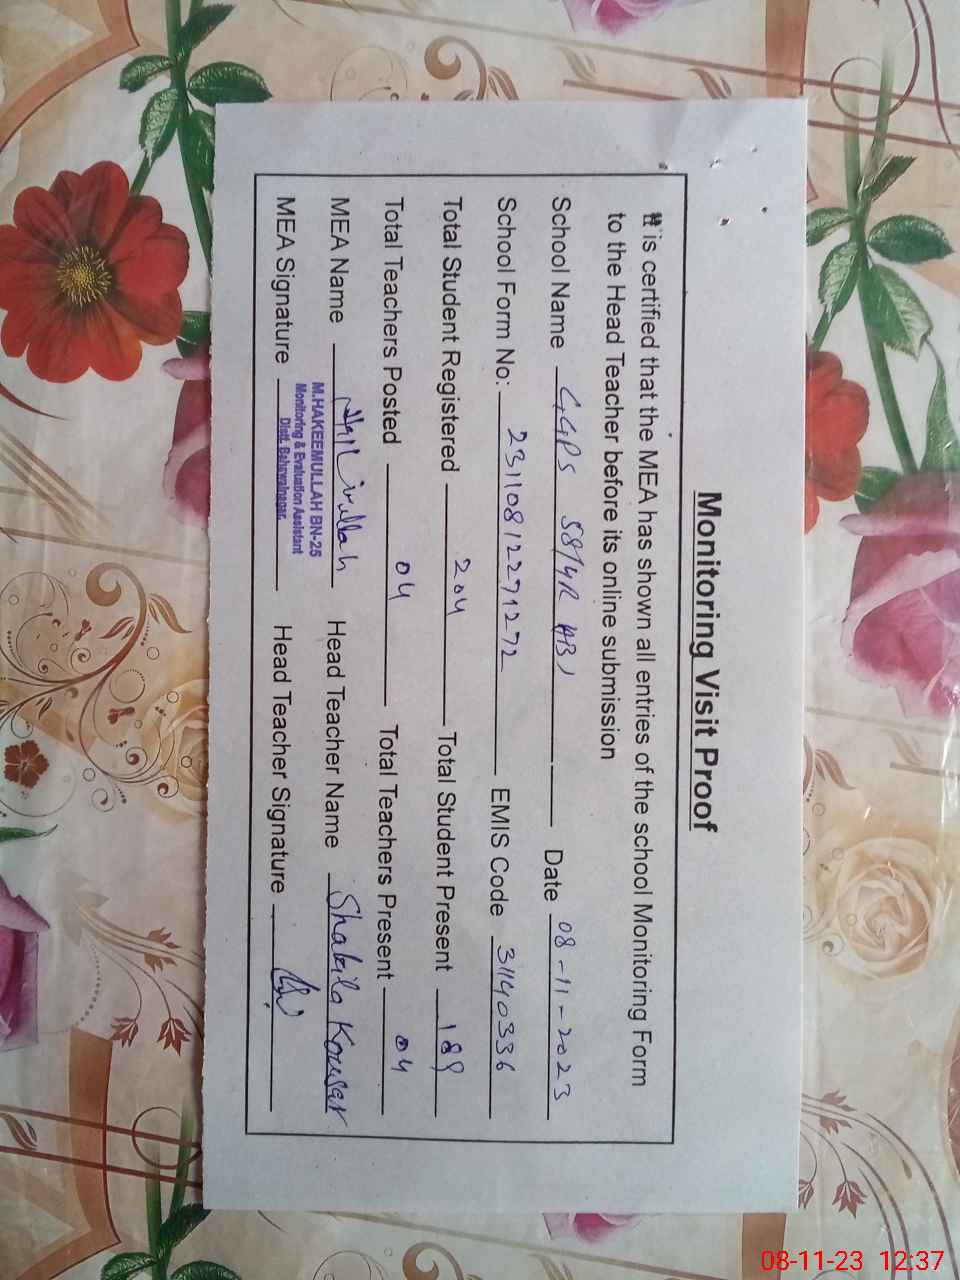 Monitoring Visit Proof
It is certified that the MEA has shown all entries of the school Monitoring Form
to the Head Teacher before its online submission
School Name GGPS 58/4R AB) Date 08-11-2023
School Form No: 23110812271272 EMIS Code 31140336
Total Student Registered 204 Total Student Present 189
Total Teachers Posted 04 Total Teachers Present 04
MEA Name Head Teacher Name Shakila Kousar
M.HAKEEMULLAH BN-25
Monitoring & Evaluation Assistant
Distt. Bahawalnagar.
MEA Signature Head Teacher Signature
08-11-23 12:37